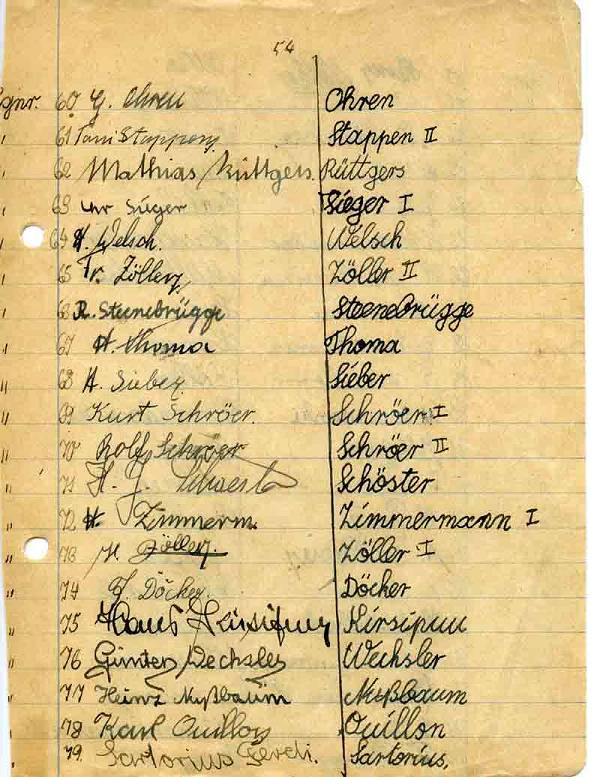 54
gnr. 60 G. Ohren Ohren
" 61 Toni Stappen Stappen II
" 62 Mathias Rüttgers. Rüttgers
" 63 Sieger Sieger I
" 64 H. Welsch. Welsch
" 65 Tr. Zöller Zöller II
" 66 R. Steenebrügge Steenebrügge
" 67 H. Thoma Thoma
" 68 H. Sieber Sieber
" 69 Kurt Schröer. Schröer I
" 70 Rolf Schröer Schröer II
" 71 H. J. Schöster
" 72 H. Zimmerm. Zimmermann I
" 73 H. Zöller. Zöller I
" 74 Döcher
" 75 Hans
" 76 Günter Wechsler Wechsler
" 77 Heinz Nußbaum Nußbaum
" 78 Karl Quillon Quillon
" 79. Sartorius Sartorius.